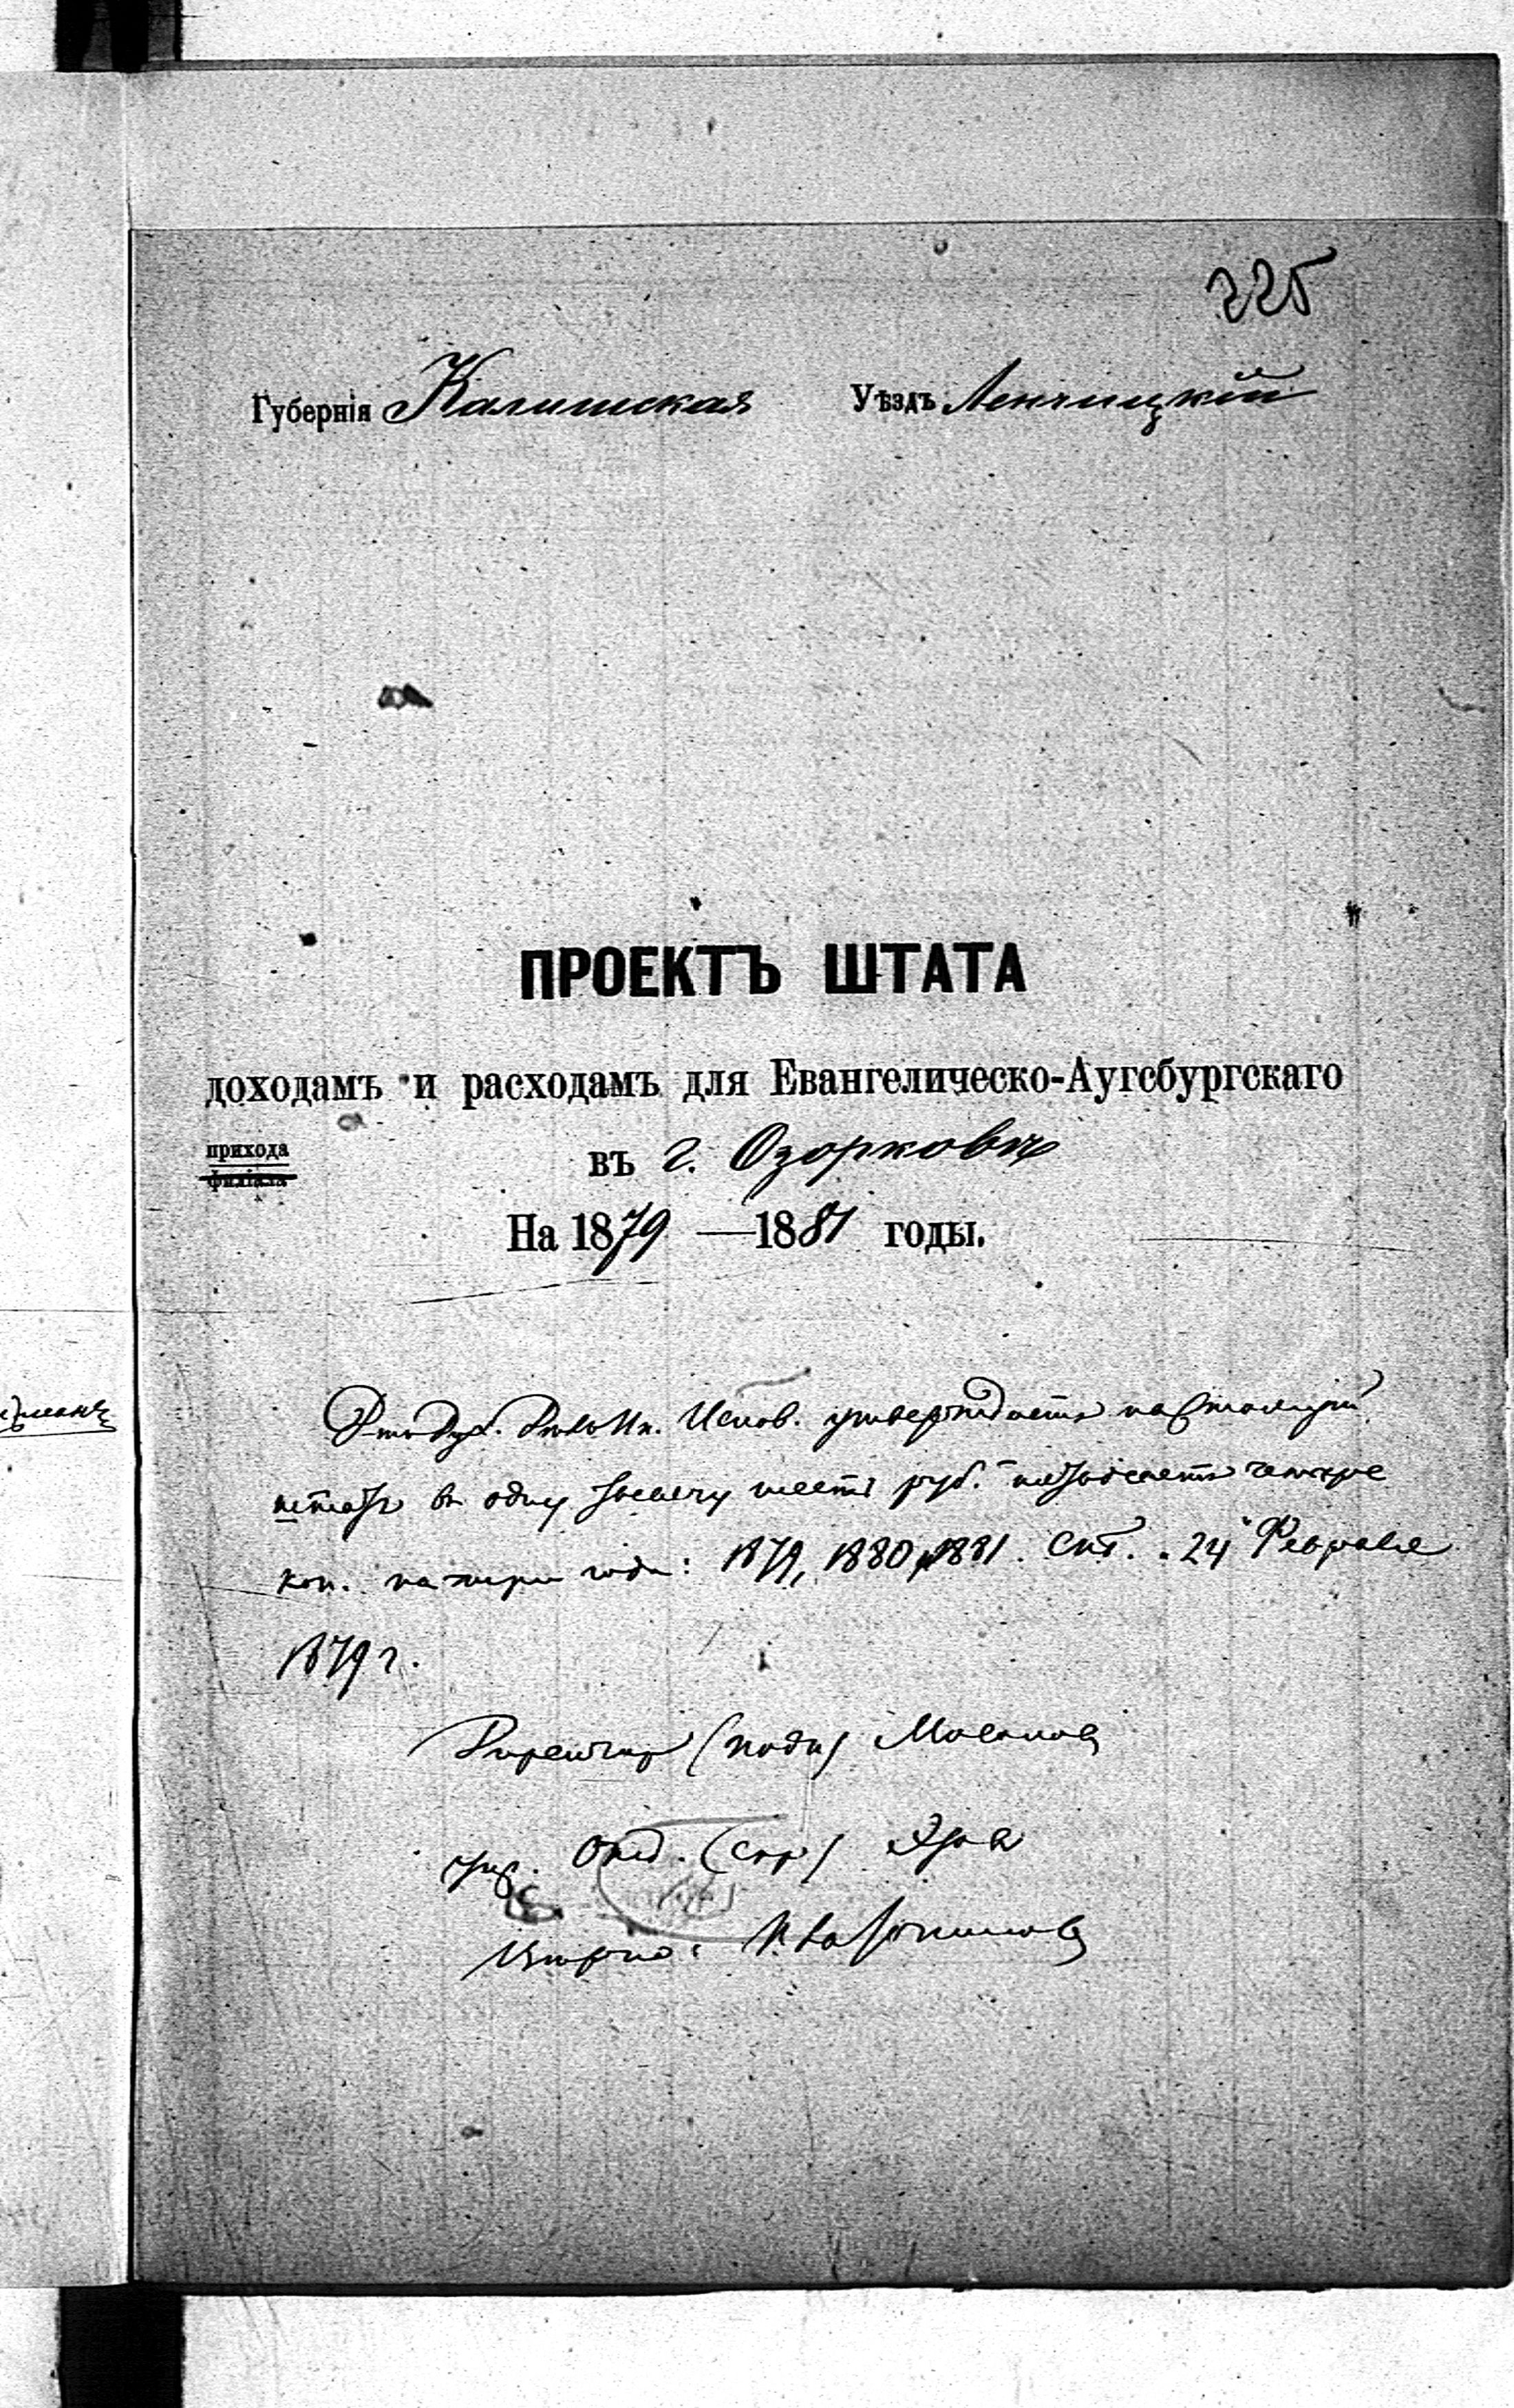 225
Губернія Калишская Уѣздъ Ленчицкій
ПРОЕКТЪ ШТАТА
доходамъ и расходамъ для Евангелическо-Аугсбургскаго
прихода
филіала
въ г. Озорковѣ
На 1879 — 1881 годы.
Исков. утверждается настоящій
штатъ въ одну тысячу шесть руб. пятьдесятъ четыре
коп. на три года: 1879, 1880, 1881. Спб. 24 Февраля
1879 г.
Директоръ (подп) Мосоловъ
Отд. (скр)
Вѣрно: